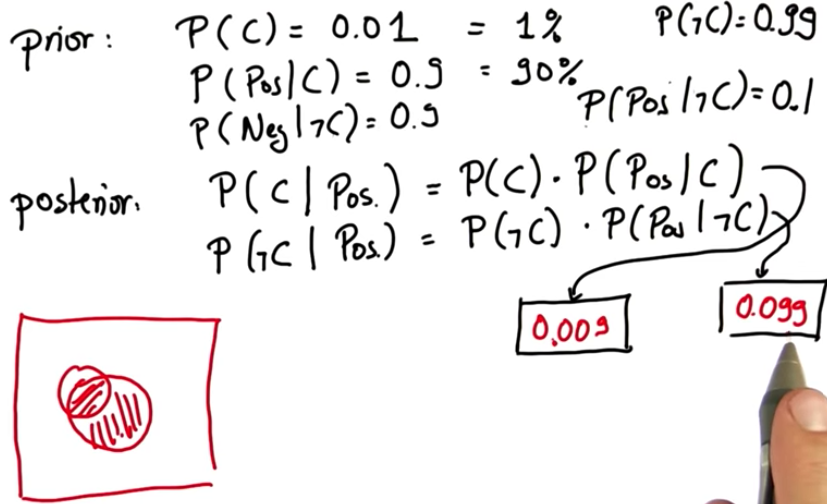 prior: P(C) = 0.01 = 1% P(¬C)=0.99
P(Pos|C) = 0.9 = 90%
P(Neg|¬C)=0.9 P(Pos|¬C)=0.1
posterior: P(C|Pos.) = P(C)·P(Pos|C)
P(¬C|Pos.) = P(¬C)·P(Pos|¬C)
0.009 0.099